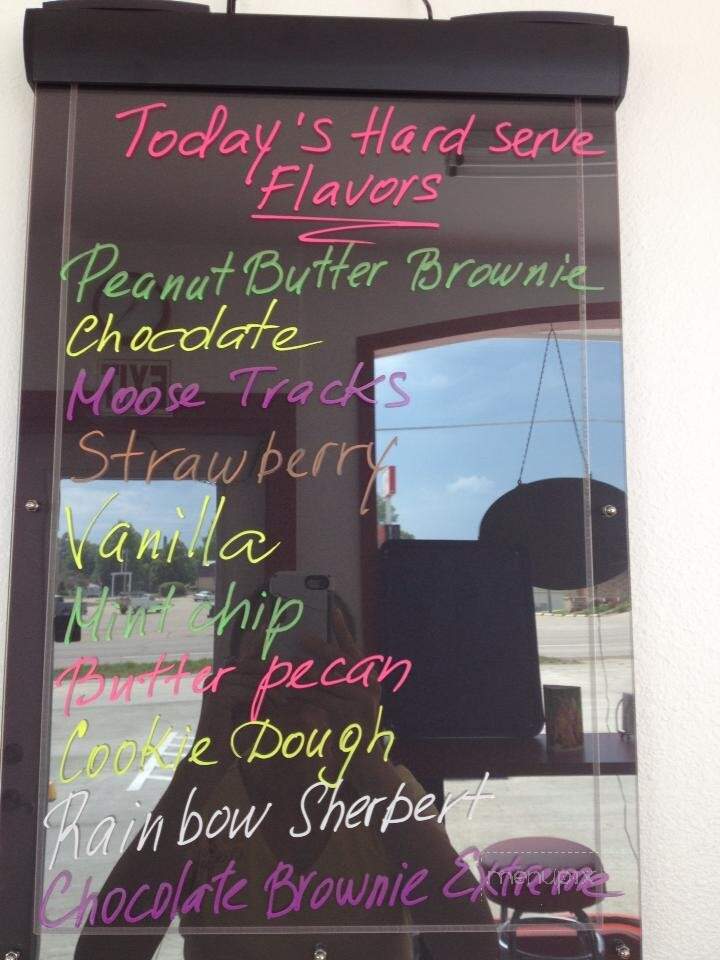 Today's Hard serve
Flavors
Peanut Butter Brownie
Chocolate
Moose Tracks
Strawberry
Vanilla
Mint chip
Butter pecan
Cookie Dough
Rainbow Sherbert
Chocolate Brownie Extreme
menupix